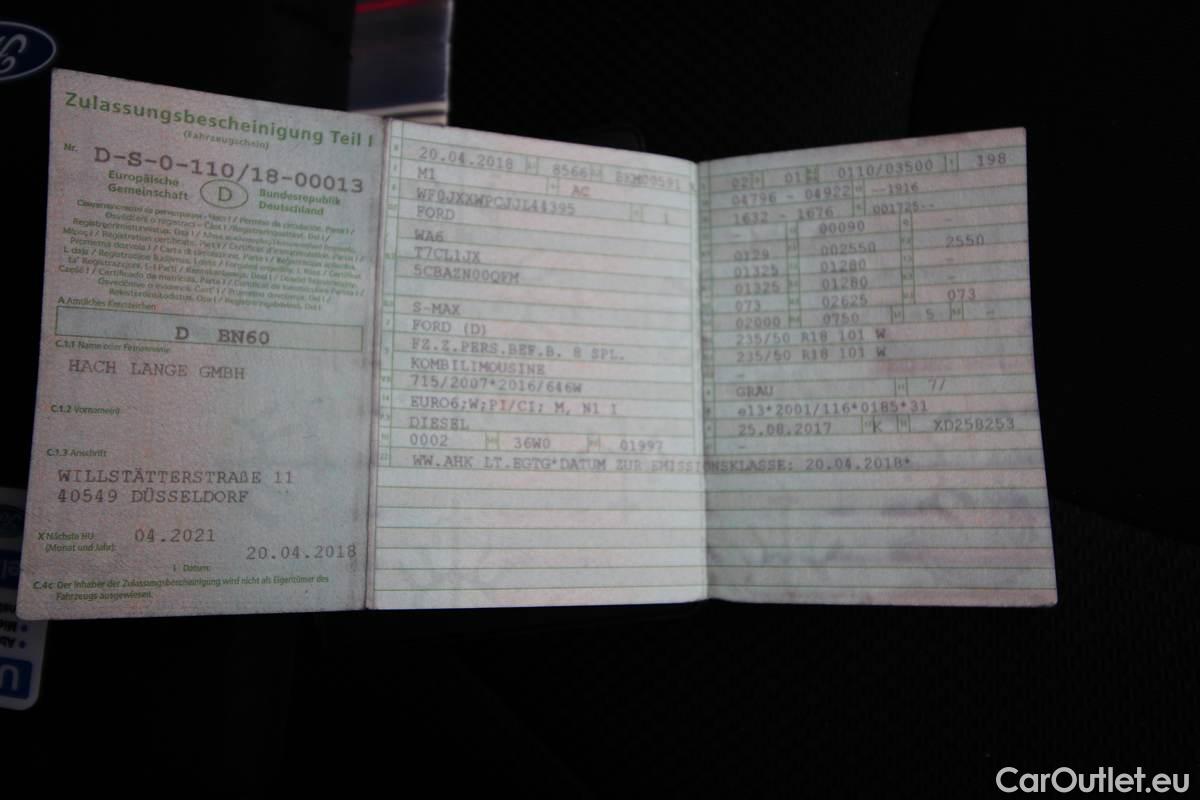 Zulassungsbescheinigung Teil I
(Fahrzeugschein)
Nr. D-S-0-110/18-00013
Europäische Gemeinschaft
D
Bundesrepublik Deutschland
A Amtliches Kennzeichen
D BN60
C.1.1 Name oder Firmenname
HACH LANGE GMBH
C.1.2 Vorname(n)
C.1.3 Anschrift
WILLSTÄTTERSTRAßE 11
40549 DÜSSELDORF
X Nächste HU
(Monat und Jahr):
04.2021
20.04.2018
I Datum:
C.4c Der Inhaber der Zulassungsbescheinigung wird nicht als Eigentümer des
Fahrzeugs ausgewiesen.
20.04.2018 8566
M1 AC
WF0JXXWPCJJL44395 1
FORD
WA6
T7CL1JX
5CBAZN00QFM
S-MAX
FORD (D)
FZ.Z.PERS.BEF.B. 8 SPL.
KOMBILIMOUSINE
715/2007*2016/646W
EURO6;W;PI/CI; M, N1 I
DIESEL
0002 36W0 01997
WW.AHK LT.EGTG*DATUM ZUR EMISSIONSKLASSE: 20.04.2018*
02 01 0110/03500 198
04796 - 04922 --1916
1632 - 1676 001725--
- 00090 -
0129 002550 2550
01325 01280 -
01325 01280 -
073 02625 073
02000 0750 5 -
235/50 R18 101 W
235/50 R18 101 W
-
GRAU 7/
e13*2001/116*0185*31
25.08.2017 K XD258253
-
CarOutlet.eu